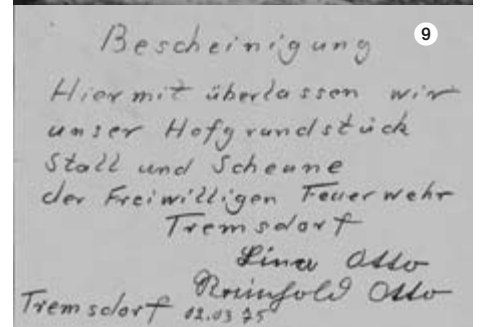 9
Bescheinigung
Hiermit überlassen wir
unser Hofgrundstück
Stall und Scheune
der Freiwilligen Feuerwehr
Tremsdorf
Lina Otto
Reinhold Otto
Tremsdorf 02.03 75